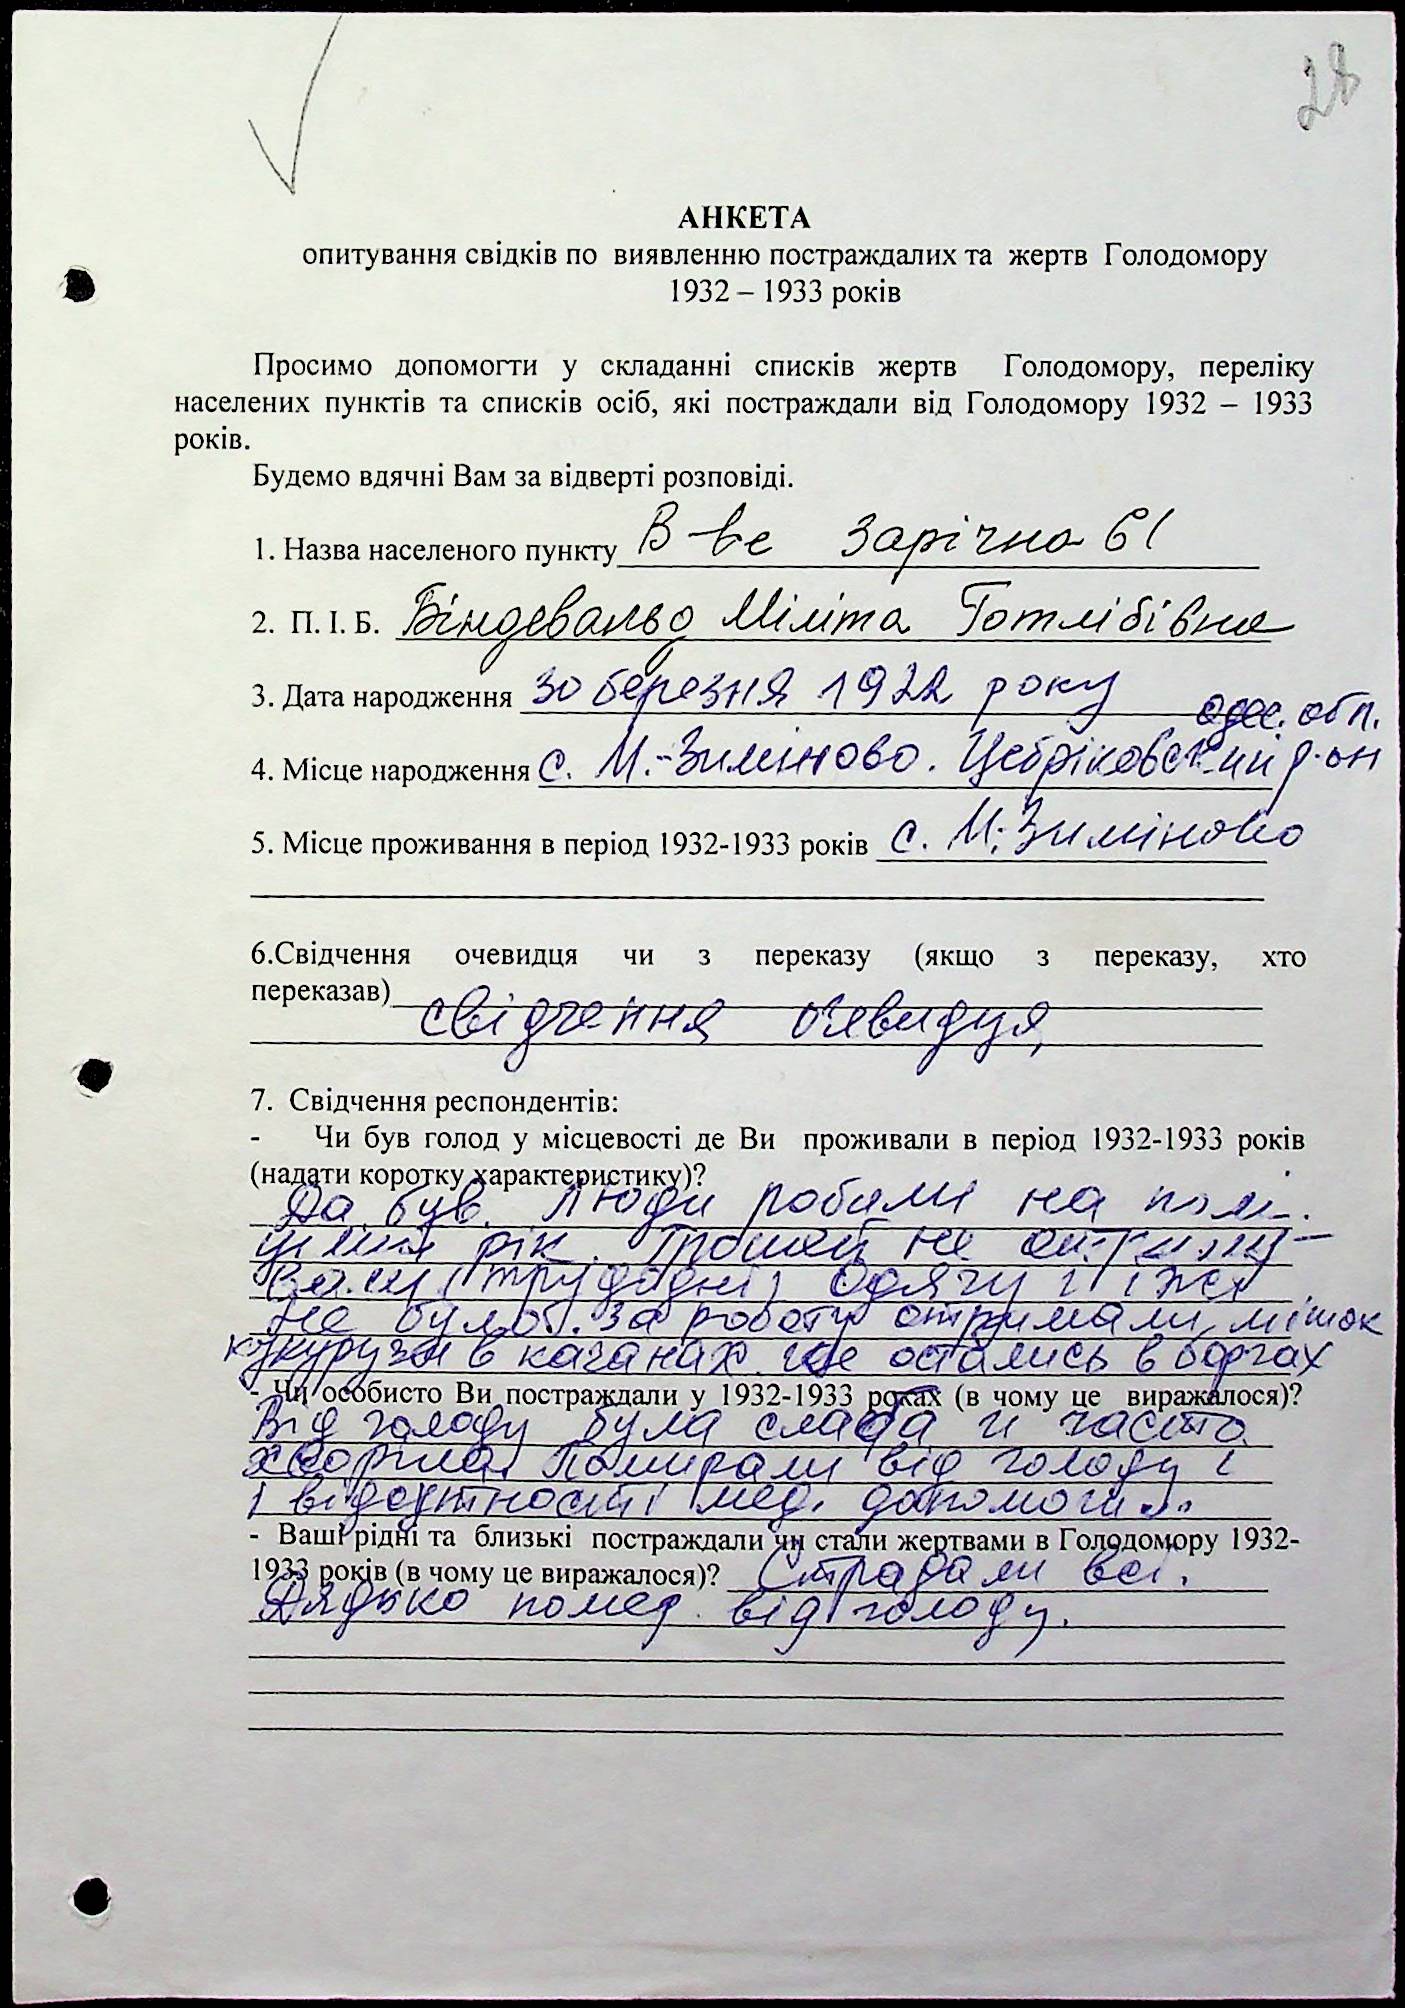 28
АНКЕТА
опитування свідків по виявленню постраждалих та жертв Голодомору
1932 – 1933 років
Просимо допомогти у складанні списків жертв Голодомору, переліку
населених пунктів та списків осіб, які постраждали від Голодомору 1932 – 1933
років.
Будемо вдячні Вам за відверті розповіді.
1. Назва населеного пункту В-ве Зарічна 61
2. П. І. Б. Біндевальд Міліта Готлібівна
3. Дата народження 30 березня 1922 року
Одес. обл.
4. Місце народження с. М.-Зиміново. Цебріковский р-он
5. Місце проживання в період 1932-1933 років с. М.-Зиміново
6.Свідчення очевидця чи з переказу (якщо з переказу, хто
переказав)
свідчення очевидця
7. Свідчення респондентів:
- Чи був голод у місцевості де Ви проживали в період 1932-1933 років
(надати коротку характеристику)?
Да був. Люди робили на полі
цілий рік. Грошей не отриму-
вали (трудодні) одягу і їжі
не було. За роботу отримали мішок
кукурузи в качанах остались в боргах
- Чи особисто Ви постраждали у 1932-1933 роках (в чому це виражалося)?
Від голоду була слаба и часто
хворіла. Помирали від голоду і
і відсутності мед. допомоги...
- Ваші рідні та близькі постраждали чи стали жертвами в Голодомору 1932-
1933 років (в чому це виражалося)? Страдали всі.
Дядько помер від голоду.